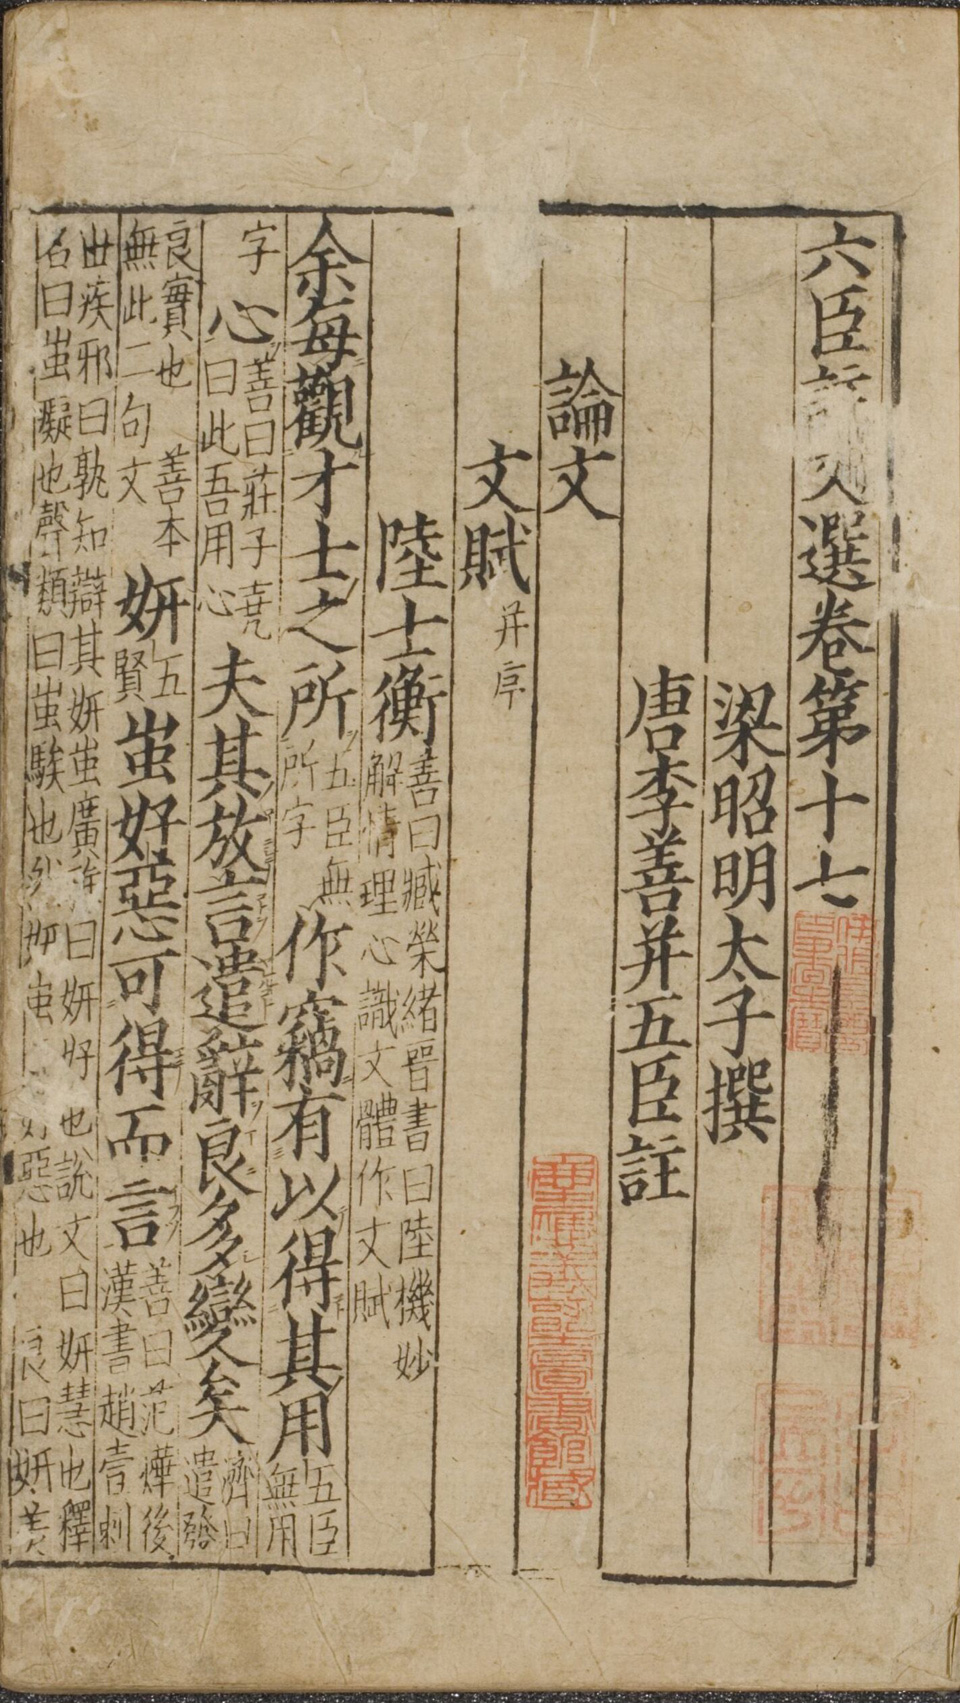 六臣註文選卷第十七
梁昭明太子撰
唐李善并五臣註
論文
文賦并序
陸士衡善曰臧榮緒晉書曰陸機妙解情理心識文體作文賦
余每觀才士之所五臣無所字作竊有以得其用五臣無用
字心善曰莊子堯曰此吾用心夫其放言遣辭良多變矣濟曰遣發
良實也善本無此二句文妍五賢蚩好惡可得而言善曰范曄後漢書趙壹刺
世疾邪曰孰知辯其妍蚩廣雅曰妍好也說文曰妍慧也釋
名曰蚩癡也聲類曰蚩騃也然妍蚩好惡也良曰妍美